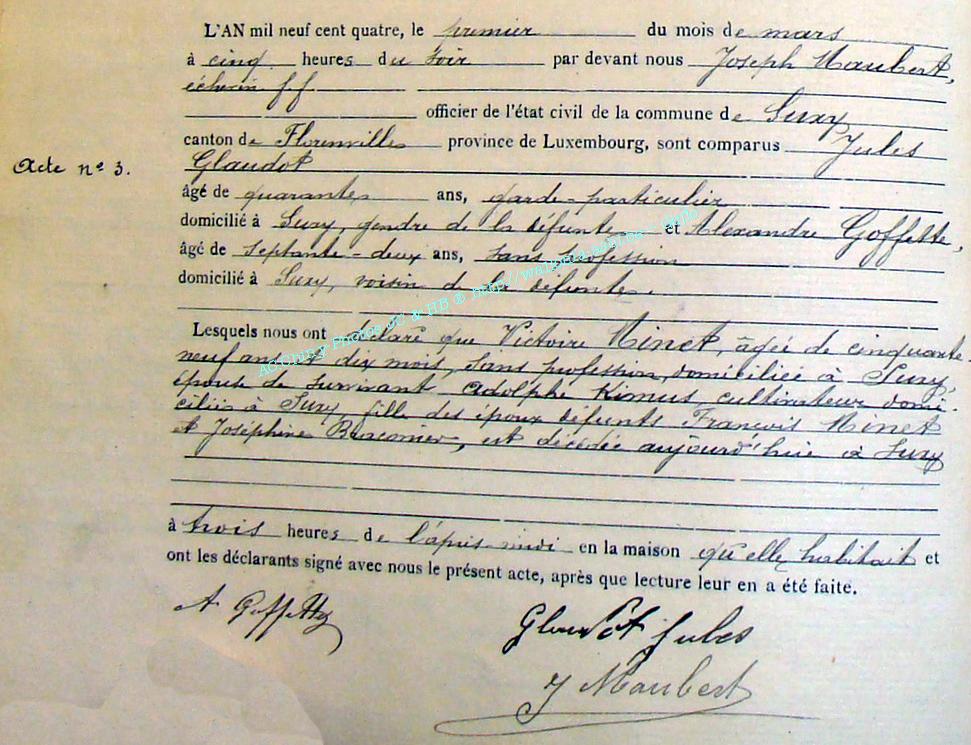 L'AN mil neuf cent quatre, le premier du mois de mars
à cinq heures du soir par devant nous Joseph Maubert,
échevin ff
officier de l'état civil de la commune de Suxy
canton de Florenville province de Luxembourg, sont comparus Jules
Acte nº 3.
Glaudot
âgé de quarante ans, garde-particulier
domicilié à Suxy, gendre de la défunte et Alexandre Goffette,
âgé de septante-deux ans, sans profession
domicilié à Suxy, voisin de la défunte.
Lesquels nous ont déclaré que Victoire Minet, âgée de cinquante-
neuf ans dix mois, sans profession, domiciliée à Suxy,
épouse de survivant Adolphe Kimus, cultivateur domi-
cilié à Suxy, fille des époux défunts François Minet
et Joséphine est décédée aujourd'hui à Suxy
à trois heures de l'après-midi en la maison qu'elle habitait et
ont les déclarants signé avec nous le présent acte, après que lecture leur en a été faite.
A Goffette
Glaudot Jules
J Maubert